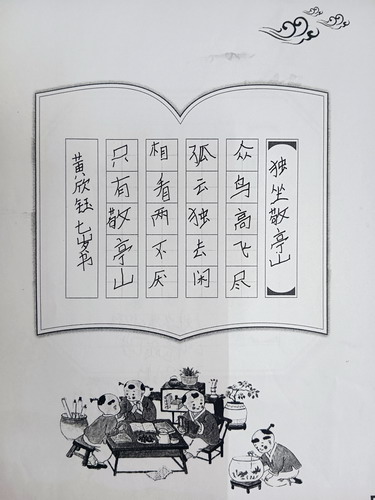 独坐敬亭山
众鸟高飞尽
孤云独去闲
相看两不厌
只有敬亭山
黄欣钰 七岁书